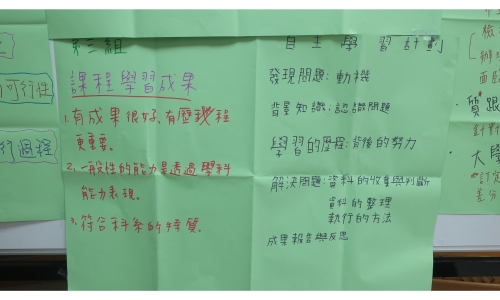 第三組
課程學習成果
1.有成果很好,有歷程
更重要。
2.一般性的能力是透過學科
能力表現。
3.符合科系的特質。
自主學習計劃
發現問題:動機
背景知識:認識問題
學習的歷程:背後的努力
解決問題:資料的收集與判斷
資料的整理
執行的方法
成果報告與反思
可行性
行過程
質跟
大學